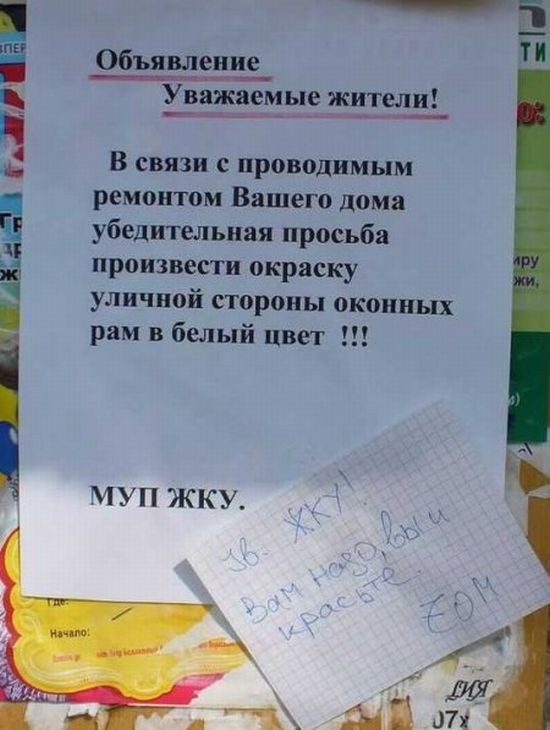 Объявление
Уважаемые жители!
В связи с проводимым
ремонтом Вашего дома
убедительная просьба
произвести окраску
уличной стороны оконных
рам в белый цвет !!!
МУП ЖКУ.
Ув. ЖКУ!
Вам надо, вы и
красьте.
ZOM
Где:
Начало:
ТИ
ру
жи,
ЛИЯ
07х